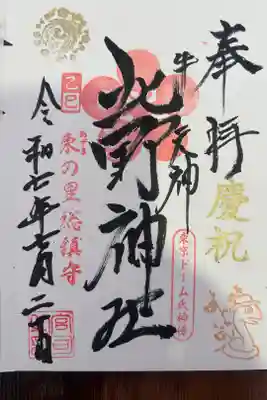 奉拝
慶祝
牛天神
北野神社
東京ドーム氏神様
乙巳
東の里総鎮守
令和七年七月二十日
宮司